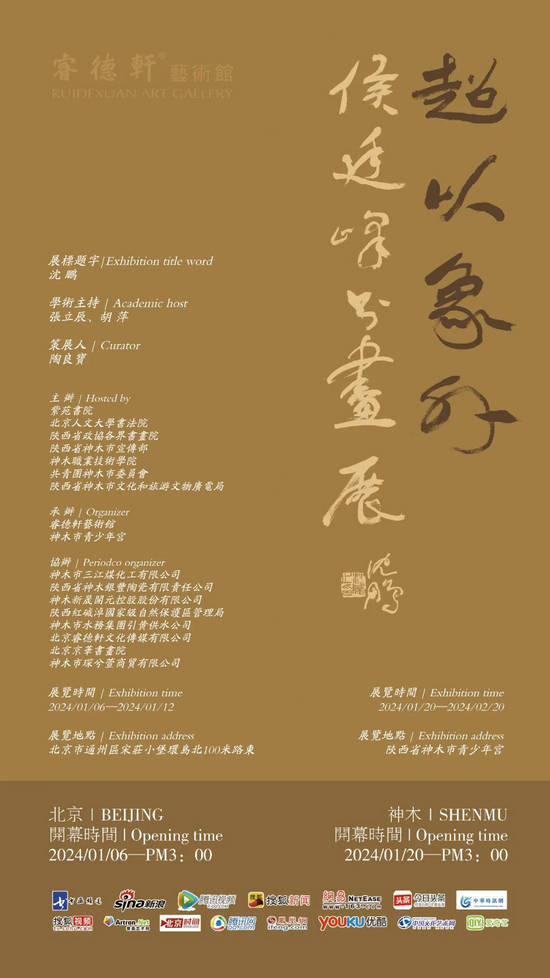 睿德軒®藝術館
RUIDEXUAN ART GALLERY
超以象外
侯廷峰书畫展
沈鵬
展標題字|Exhibition title word
沈 鵬
學術主持 | Academic host
張立辰、胡 萍
策展人 | Curator
陶良寶
主 辦 | Hosted by
紫苑書院
北京人文大學書法院
陝西省政協各界書畫院
陝西省神木市宣傳部
神木職業技術學院
共青團神木市委員會
陝西省神木市文化和旅游文物廣電局
承 辦 | Organizer
睿德軒藝術館
神木市青少年宮
協辦 | Periodco organizer
神木市三江煤化工有限公司
陝西省神木銀豐陶瓷有限責任公司
神木新晟開元控股股份有限公司
陝西紅碱淖國家級自然保護區管理局
神木市水務集團引黄供水公司
北京睿德軒文化傳媒有限公司
北京京華書畫院
神木市琛兮萱商貿有限公司
展覽時間 | Exhibition time
2024/01/06—2024/01/12
展覽地點 | Exhibition address
北京市通州區宋莊小堡環島北100米路東
展覽時間 | Exhibition time
2024/01/20—2024/02/20
展覽地點 | Exhibition address
陝西省神木市青少年宮
北京 | BEIJING
開幕時間 | Opening time
2024/01/06—PM3：00
神木 | SHENMU
開幕時間 | Opening time
2024/01/20—PM3：00
sina新浪
腾讯视频
搜狐新闻
網易 NETEASE
www.163.com
头条 今日头条
中華時訊網
搜狐视频
Artron.Net
北京时间
腾讯网
凤凰网
ifeng.com
YOUKU优酷
中国文化艺术网
iQIYI 爱奇艺